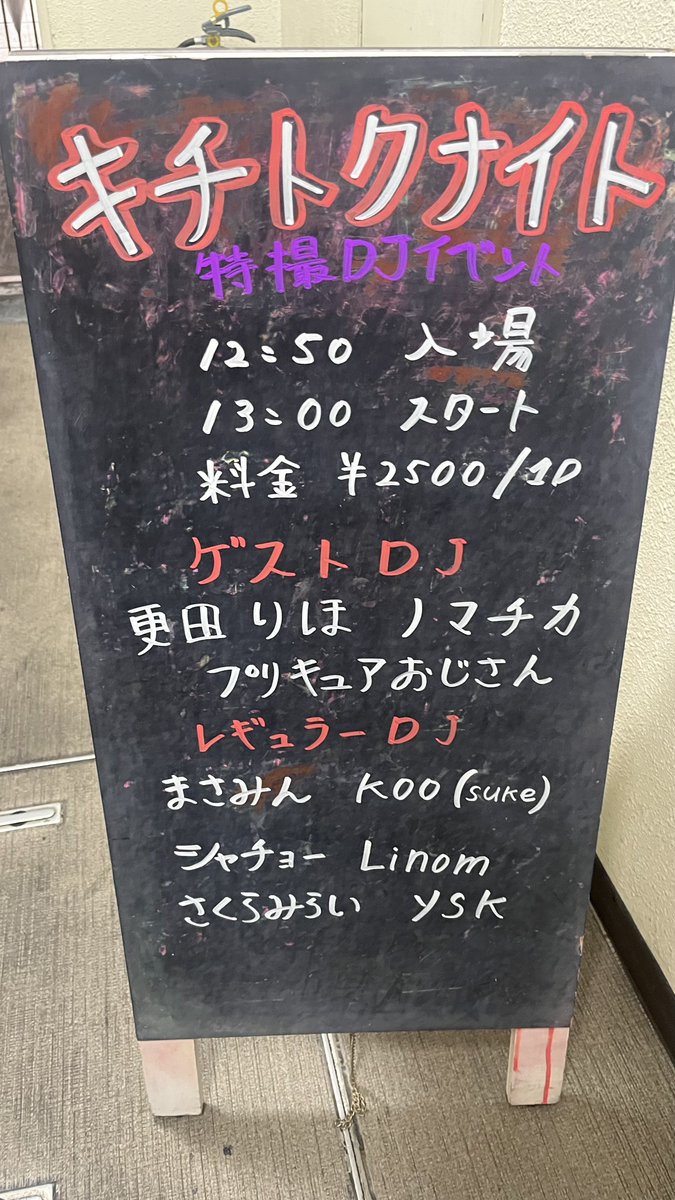 キチトクナイト
特撮DJイベント
12:50 入場
13:00 スタート
料金 ¥2500/1D
ゲストDJ
更田りほ ノマチカ
プリキュアおじさん
レギュラーDJ
まさみん KOO(suke)
シャチョー Linom
さくらみらい YSK